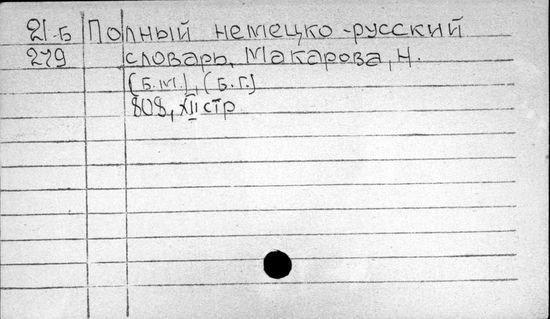 21-Б Полный немецко-русский
279 словарь, Макарова, Н.
[Б.М.], [Б.Г.]
808, XII стр.